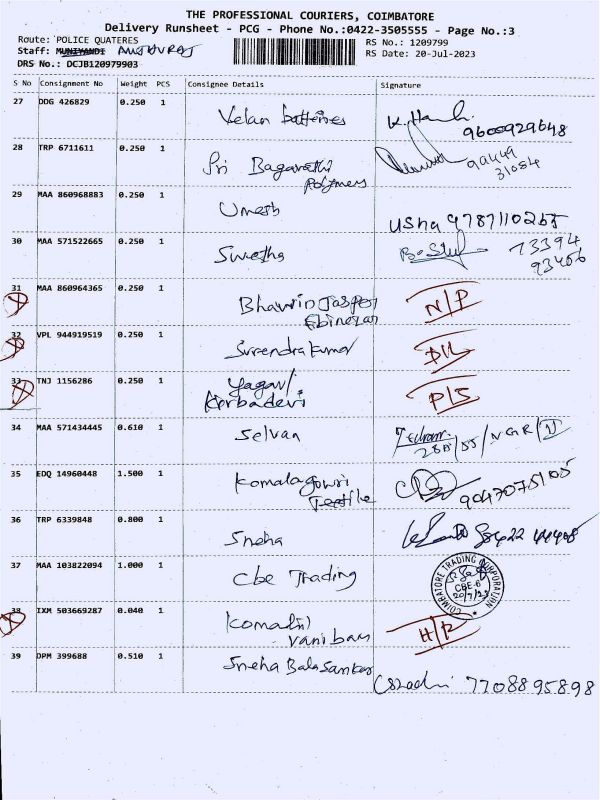 THE PROFESSIONAL COURIERS, COIMBATORE
Delivery Runsheet - PCG - Phone No.:0422-3505555 - Page No.:3
Route: POLICE QUATERES
RS No.: 1209799
Staff: MUNIYANDI
RS Date: 20-Jul-2023
DRS No.: DCJB120979903
S No Consignment No Weight PCS Consignee Details Signature
27 DDG 426829 0.250 1 Velan batteries
9600929648
28 TRP 6711611 0.250 1 Sri Bagavathi Polymers
99449 31054
29 MAA 860968883 0.250 1 Umesh Usha 9787110265
30 MAA 571522665 0.250 1 Swetha 73394 93406
31 MAA 860964365 0.250 1 Bhavrin Jasper Ebinezar N/P
32 VPL 944919519 0.250 1 Surendra kumar D/L
33 TNJ 1156286 0.250 1 Yagavi Kirbadevi P/S
34 MAA 571434445 0.610 1 Selvan
28A/55/NGR/D
35 EDQ 14960448 1.500 1 Komalagowri Textile 9047075105
36 TRP 6339848 0.800 1 Sneha
37 MAA 103822094 1.000 1 Cbe Trading COIMBATORE TRADING CORPORATION CBE-6 20/7/23
38 IXM 503669287 0.040 1 Komalni vanibam H/R
39 DPM 399688 0.510 1 Sneha Bala Sankar 7708895898